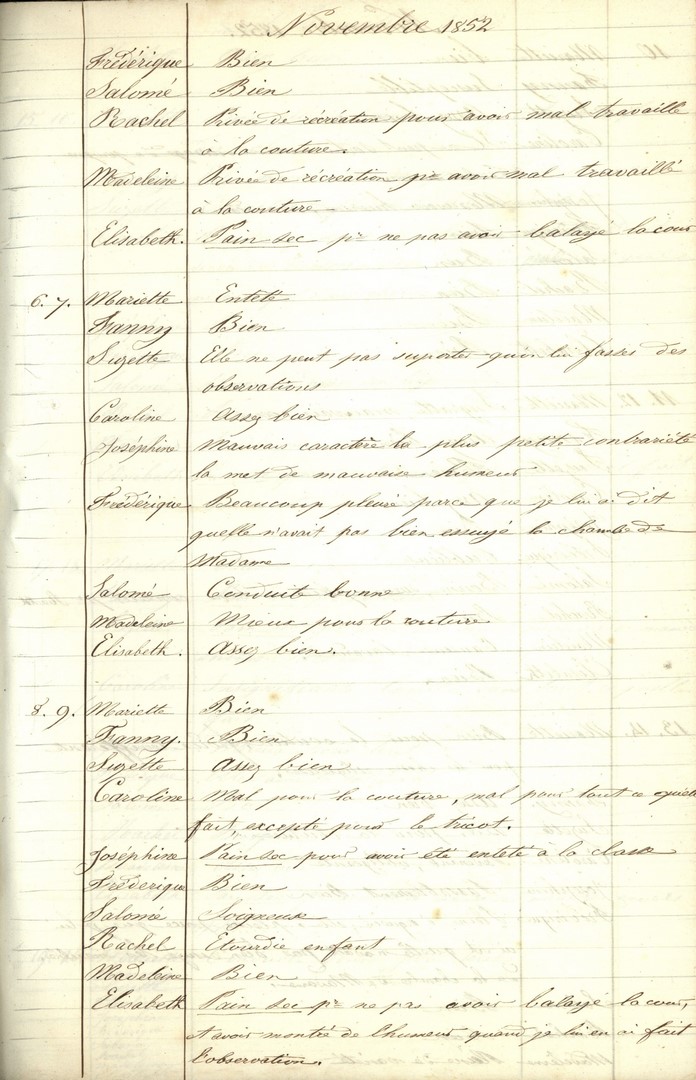 Novembre 1852
Frédérique Bien
Salomé Bien
Rachel Privée de récréation pour avoir mal travaillé
à la couture.
Madeleine Privée de récréation pr avoir mal travaillé
à la couture
Elisabeth. Pain sec pr ne pas avoir balayé la cour
6. 7. Mariette Enteté
Fanny Bien
Suzette Elle ne peut pas suporter qu'on lui fasses des
observations
Caroline Assez bien
Joséphine Mauvais caractère la plus petite contrariété
la met de mauvaise humeur
Frédérique Beaucoup pleuré parce que je lui ai dit
quelle n'avait pas bien essuyé la chambre de
Madame
Salomé Conduite bonne
Madeleine Mieux pour la couture
Elisabeth. Assez bien.
8. 9. Mariette Bien
Fanny. Bien
Suzette Assez bien
Caroline Mal pour la couture, mal pour tout ce quelle
fait, excepté pour le tricot.
Joséphine Pain sec pour avoir été enteté à la classe
Fréderique Bien
Salomé Soigneuse
Rachel Etourdie enfant
Madeleine Bien
Elisabeth Pain sec pr ne pas avoir balayé la cour,
et avoir montré de l'humeur quand je lui en ai fait
l'observation.